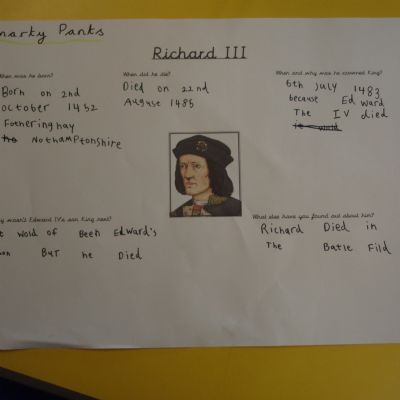 marty Pants
Richard III
When was he born?
Born on 2nd
October 1452
Fotheringhay
Nothamptonshire
When did he die?
Died on 22nd
August 1485
When and why was he crowned King?
6th July 1483
because Edward
The IV died
y wasn't Edward IV's son King next?
t wold of Been Edward's
on But he Died
What else have you found out about him?
Richard Died in
The Batle Fild